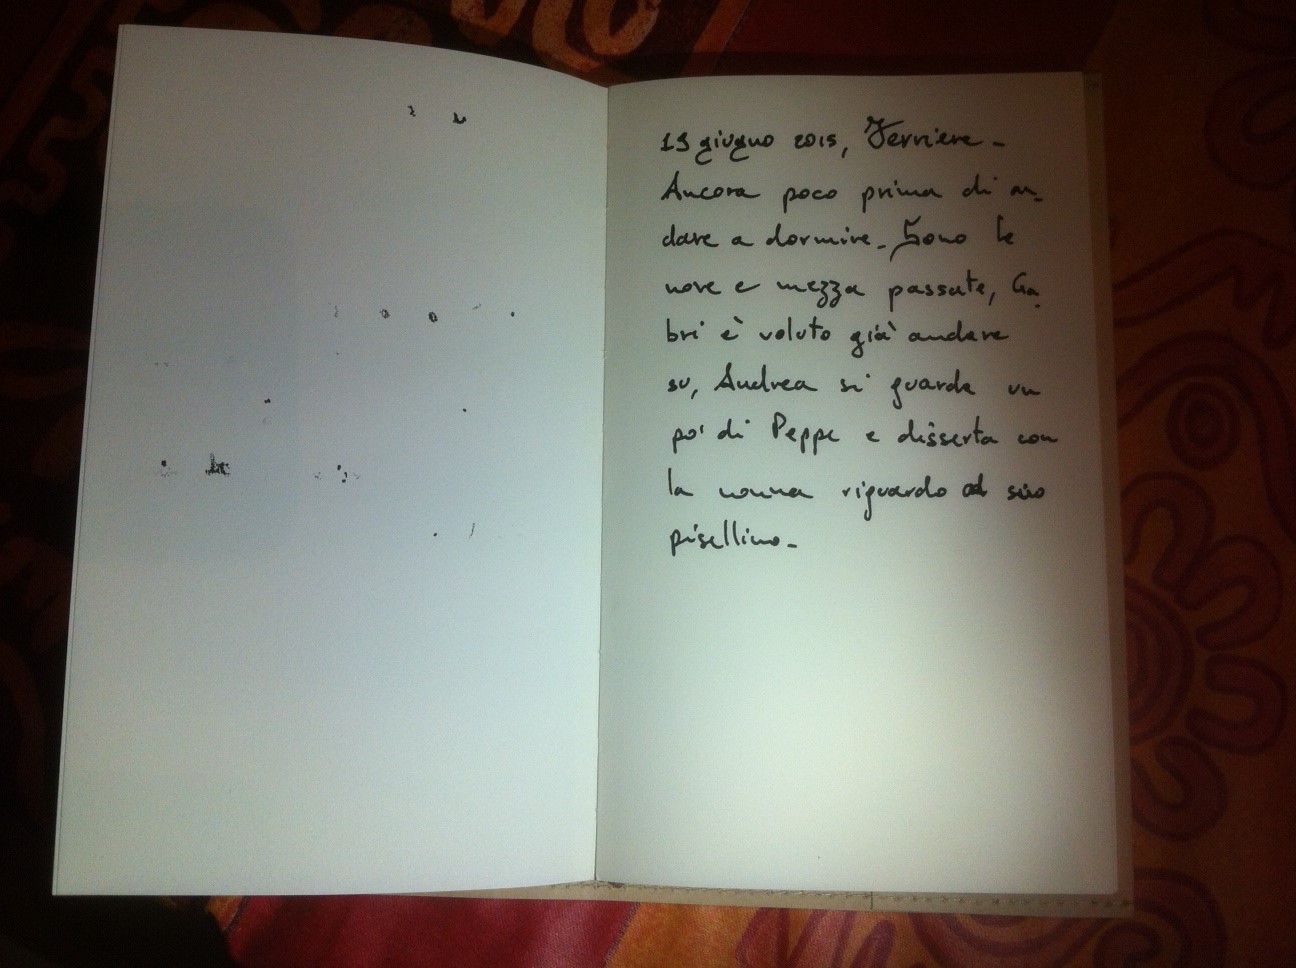 19 giugno 2015, Ferriere -
Ancora poco prima di an-
dare a dormire - Sono le
nove e mezza passate, Ga-
bri è voluto già andare
su, Andrea si guarda un
po' di Peppe e disserta con
la nonna riguardo al suo
pisellino -